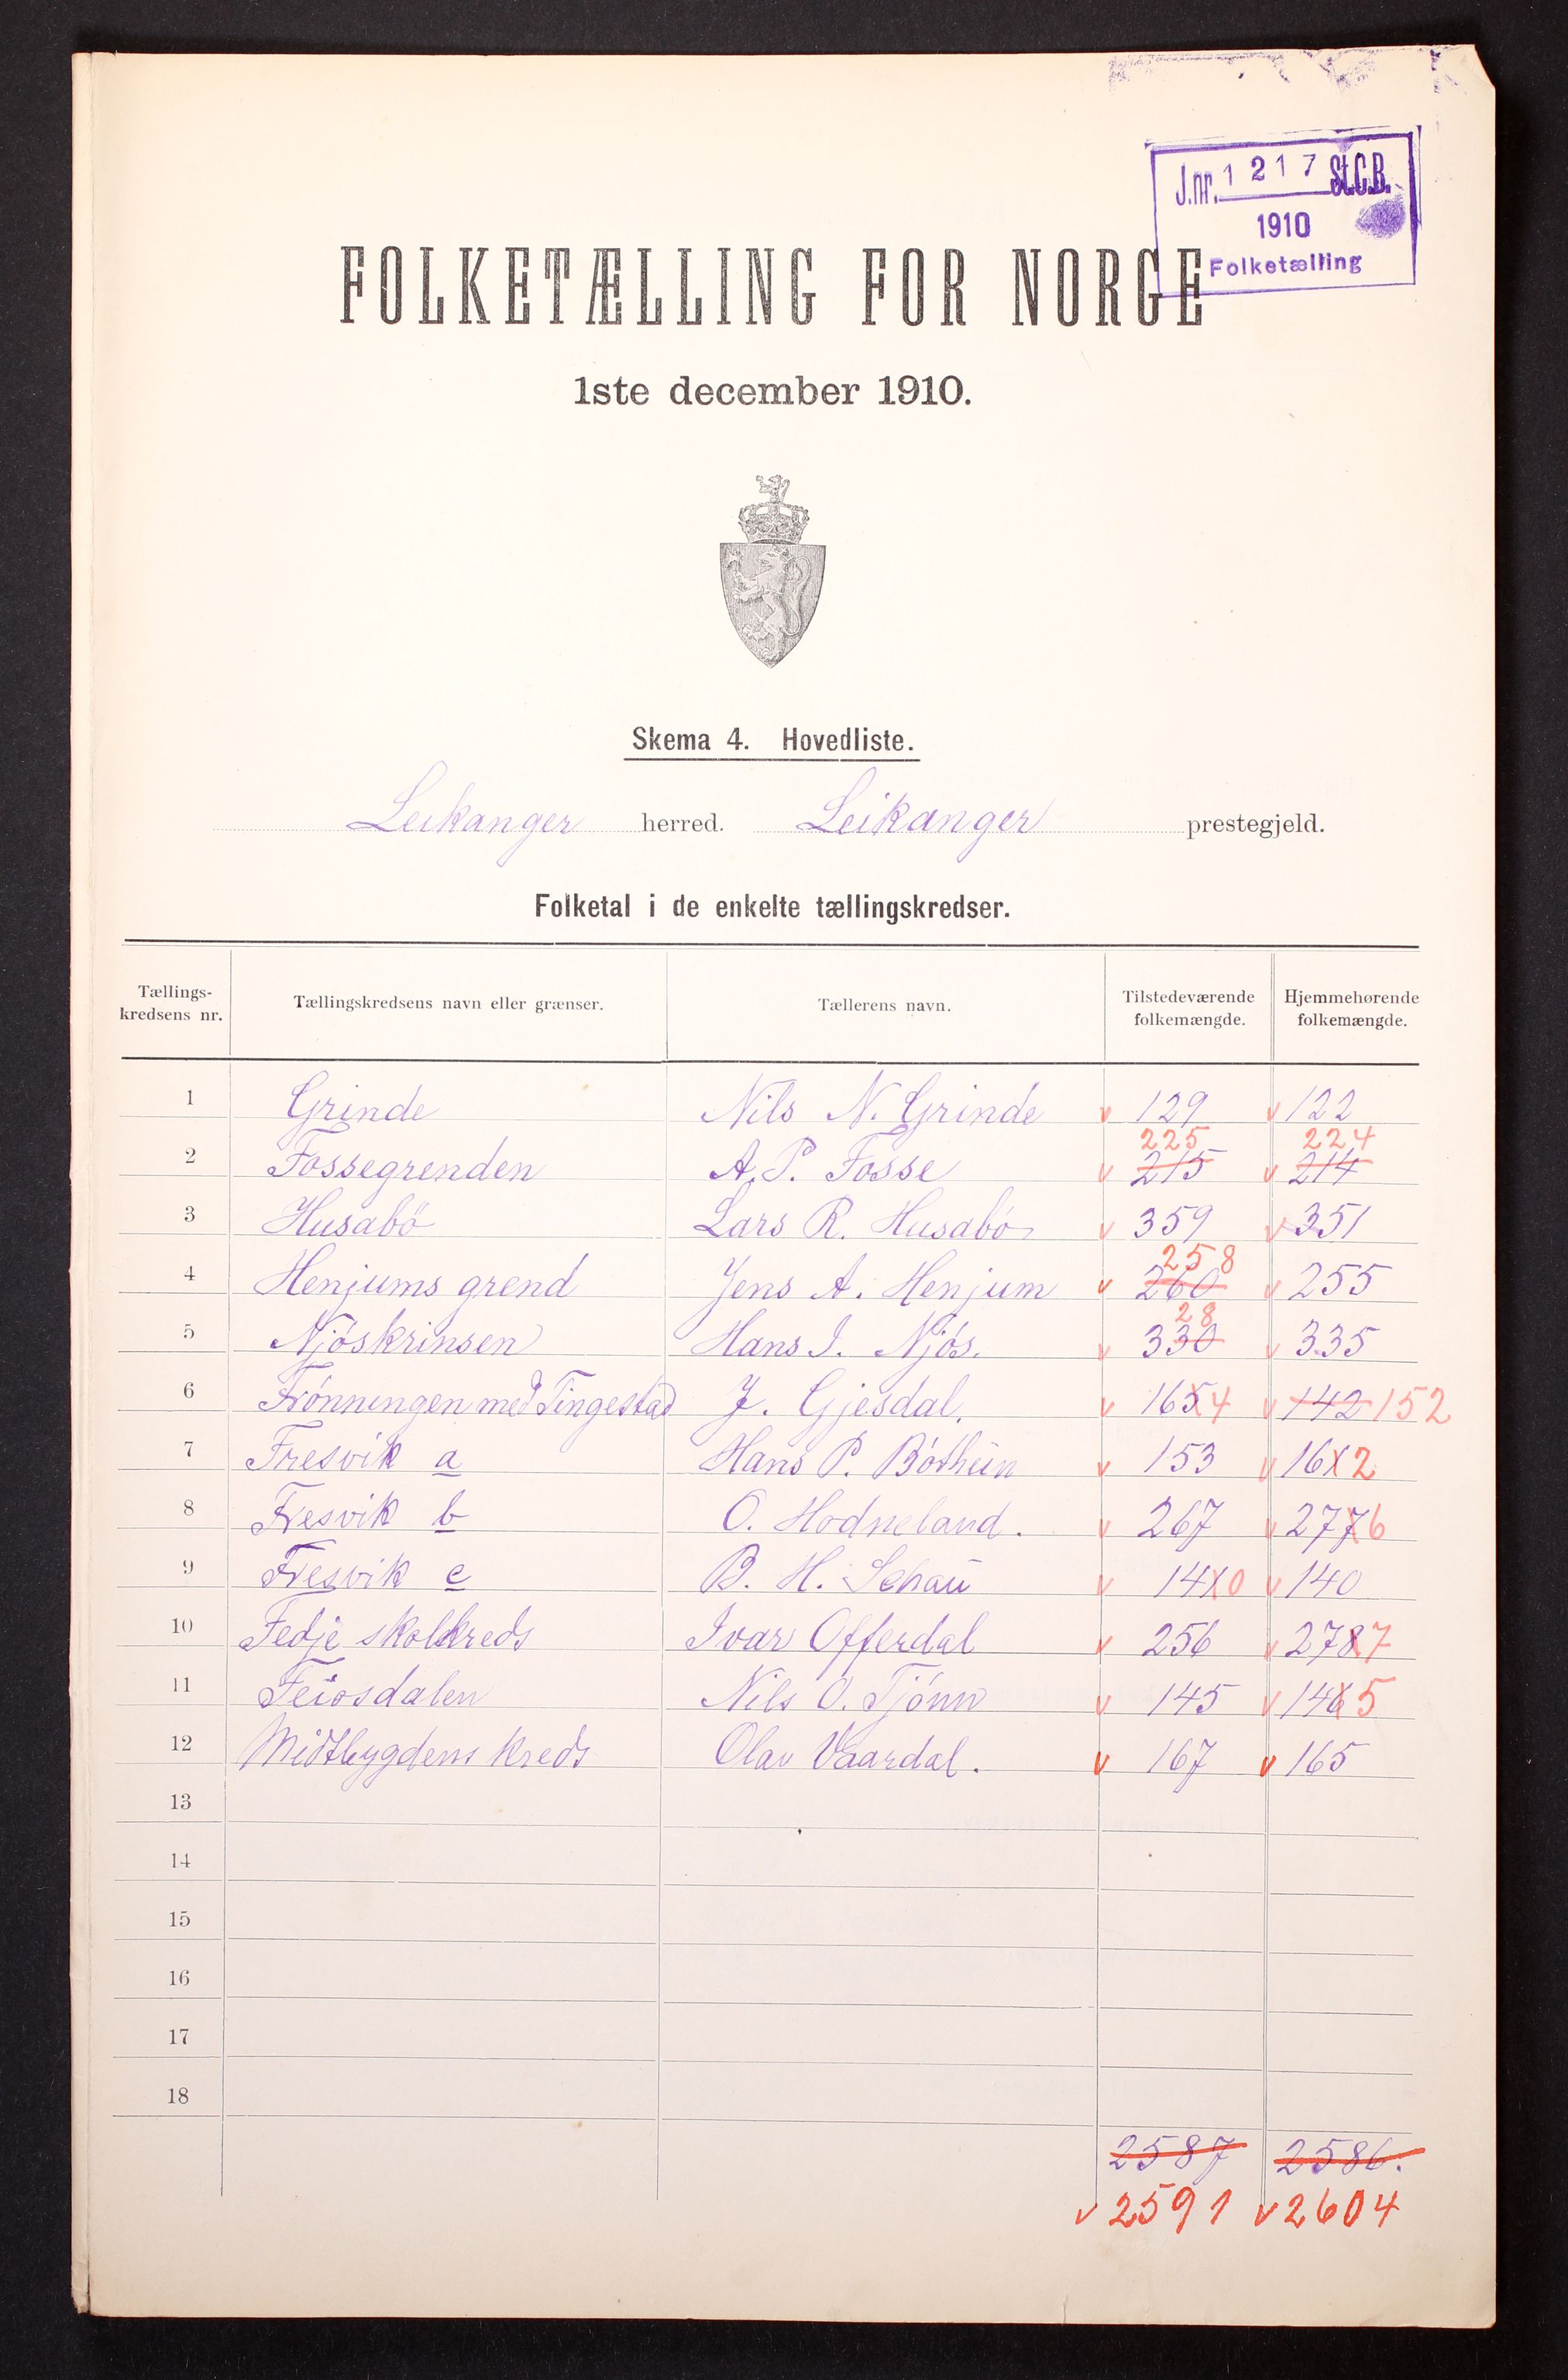 J.nr. 1217 St.C.B.
1910
Folketælling
FOLKETÆLLING FOR NORGE
1ste december 1910.
Skema 4. Hovedliste.
Leikanger herred. Leikanger prestegjeld.
Folketal i de enkelte tællingskredser.
Tællings-kredsens nr. Tællingskredsens navn eller grænser. Tællerens navn. Tilstedeværende folkemængde. Hjemmehørende folkemængde.
1 Grinde Nils N. Grinde v 129 v 122
225 224
2 Fossegrenden A. P. Fosse v 215 v 214
3 Husabö Lars R. Husabö v 359 v 351
258
4 Henjums grend Jens A. Henjum v 260 v 255
28
5 Njöskrinsen Hans I. Njös. v 330 v 335
6 Frönningen med Tingestad J. Gjesdal. v 1654 v 142 152
7 Fresvik a Hans P. Böthun v 153 v 16X2
8 Fresvik b O. Hodneland. v 267 v 2776
9 Fresvik c B. H. Schau v 14X0 v 140
10 Fedje skolekreds Ivar Offerdal v 256 v 2787
11 Feiosdalen Nils O. Tjönn v 145 v 1465
12 Midtbygdens kreds Olav Vaardal. v 167 v 165
13
14
15
16
17
18
2587 2586.
v 2591 v 2604